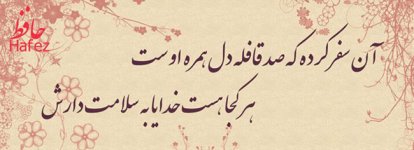 حافظ
Hafez
آن سفر کرده که صد قافله دل همره اوست
هر کجا هست خدایا به سلامت دارش